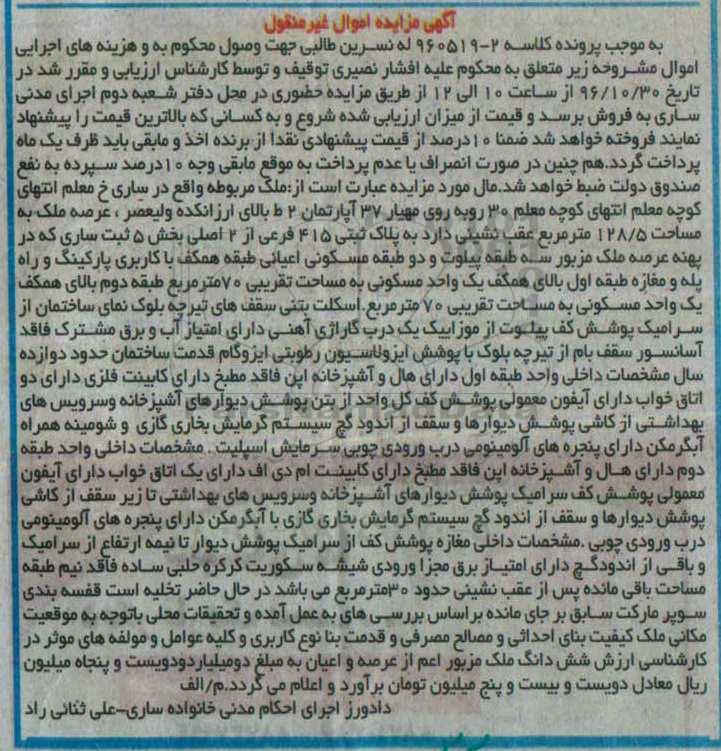 آگهی مزایده اموال غیرمنقول
به موجب پرونده کلاسه ۲-۹۶۰۵۱۹ له نسرین طالبی جهت وصول محکوم به و هزینه های اجرایی
اموال مشروحه زیر متعلق به محکوم علیه افشار نصیری توقیف و توسط کارشناس ارزیابی و مقرر شد در
تاریخ ۹۶/۱۰/۳۰ از ساعت ۱۰ الی ۱۲ از طریق مزایده حضوری در محل دفتر شعبه دوم اجرای مدنی
ساری به فروش برسد و قیمت از میزان ارزیابی شده شروع و به کسانی که بالاترین قیمت را پیشنهاد
نمایند فروخته خواهد شد ضمنا ۱۰درصد از قیمت پیشنهادی نقدا از برنده اخذ و مابقی باید ظرف یک ماه
پرداخت گردد.هم چنین در صورت انصراف یا عدم پرداخت به موقع مابقی وجه ۱۰درصد سپرده به نفع
صندوق دولت ضبط خواهد شد.مال مورد مزایده عبارت است از:ملک مربوطه واقع در ساری خ معلم انتهای
کوچه معلم انتهای کوچه معلم ۳۰ روبه روی مهیار ۳۷ آپارتمان ۲ ط بالای ارزانکده ولیعصر ، عرصه ملک به
مساحت ۱۲۸/۵ مترمربع عقب نشینی دارد به پلاک ثبتی ۴۱۵ فرعی از ۲ اصلی بخش ۵ ثبت ساری که در
پهنه عرصه ملک مزبور سه طبقه پیلوت و دو طبقه مسکونی اعیانی طبقه همکف با کاربری پارکینگ و راه
پله و مغازه طبقه اول بالای همکف یک واحد مسکونی به مساحت تقریبی ۷۰مترمربع طبقه دوم بالای همکف
یک واحد مسکونی به مساحت تقریبی ۷۰ مترمربع.اسکلت بتنی سقف های تیرچه بلوک نمای ساختمان از
سرامیک پوشش کف پیلوت از موزاییک یک درب گاراژی آهنی دارای امتیاز آب و برق مشترک فاقد
آسانسور سقف بام از تیرچه بلوک با پوشش ایزولاسیون رطوبتی ایزوگام قدمت ساختمان حدود دوازده
سال مشخصات داخلی واحد طبقه اول دارای هال و آشپزخانه اپن فاقد مطبخ دارای کابینت فلزی دارای دو
اتاق خواب دارای آیفون معمولی پوشش کف کل واحد از بتن پوشش دیوارهای آشپزخانه وسرویس های
بهداشتی از کاشی پوشش دیوارها و سقف از اندود گچ سیستم گرمایش بخاری گازی و شومینه همراه
آبگرمکن دارای پنجره های آلومینومی درب ورودی چوبی سرمایش اسپلیت . مشخصات داخلی واحد طبقه
دوم دارای هال و آشپزخانه اپن فاقد مطبخ دارای کابینت ام دی اف دارای یک اتاق خواب دارای آیفون
معمولی پوشش کف سرامیک پوشش دیوارهای آشپزخانه وسرویس های بهداشتی تا زیر سقف از کاشی
پوشش دیوارها و سقف از اندود گچ سیستم گرمایش بخاری گازی با آبگرمکن دارای پنجره های آلومینومی
درب ورودی چوبی .مشخصات داخلی مغازه پوشش کف از سرامیک پوشش دیوار تا نیمه ارتفاع از سرامیک
و باقی از اندودگچ دارای امتیاز برق مجزا ورودی شیشه سکوریت کرکره حلبی ساده فاقد نیم طبقه
مساحت باقی مانده پس از عقب نشینی حدود ۳۰مترمربع می باشد در حال حاضر تخلیه است قفسه بندی
سوپر مارکت سابق بر جای مانده براساس بررسی های به عمل آمده و تحقیقات محلی باتوجه به موقعیت
مکانی ملک کیفیت بنای احداثی و مصالح مصرفی و قدمت بنا نوع کاربری و کلیه عوامل و مولفه های موثر در
کارشناسی ارزش شش دانگ ملک مزبور اعم از عرصه و اعیان به مبلغ دومیلیاردودویست و پنجاه میلیون
ریال معادل دویست و بیست و پنج میلیون تومان برآورد و اعلام می گردد.م/الف
دادورز اجرای احکام مدنی خانواده ساری-علی ثنائی راد